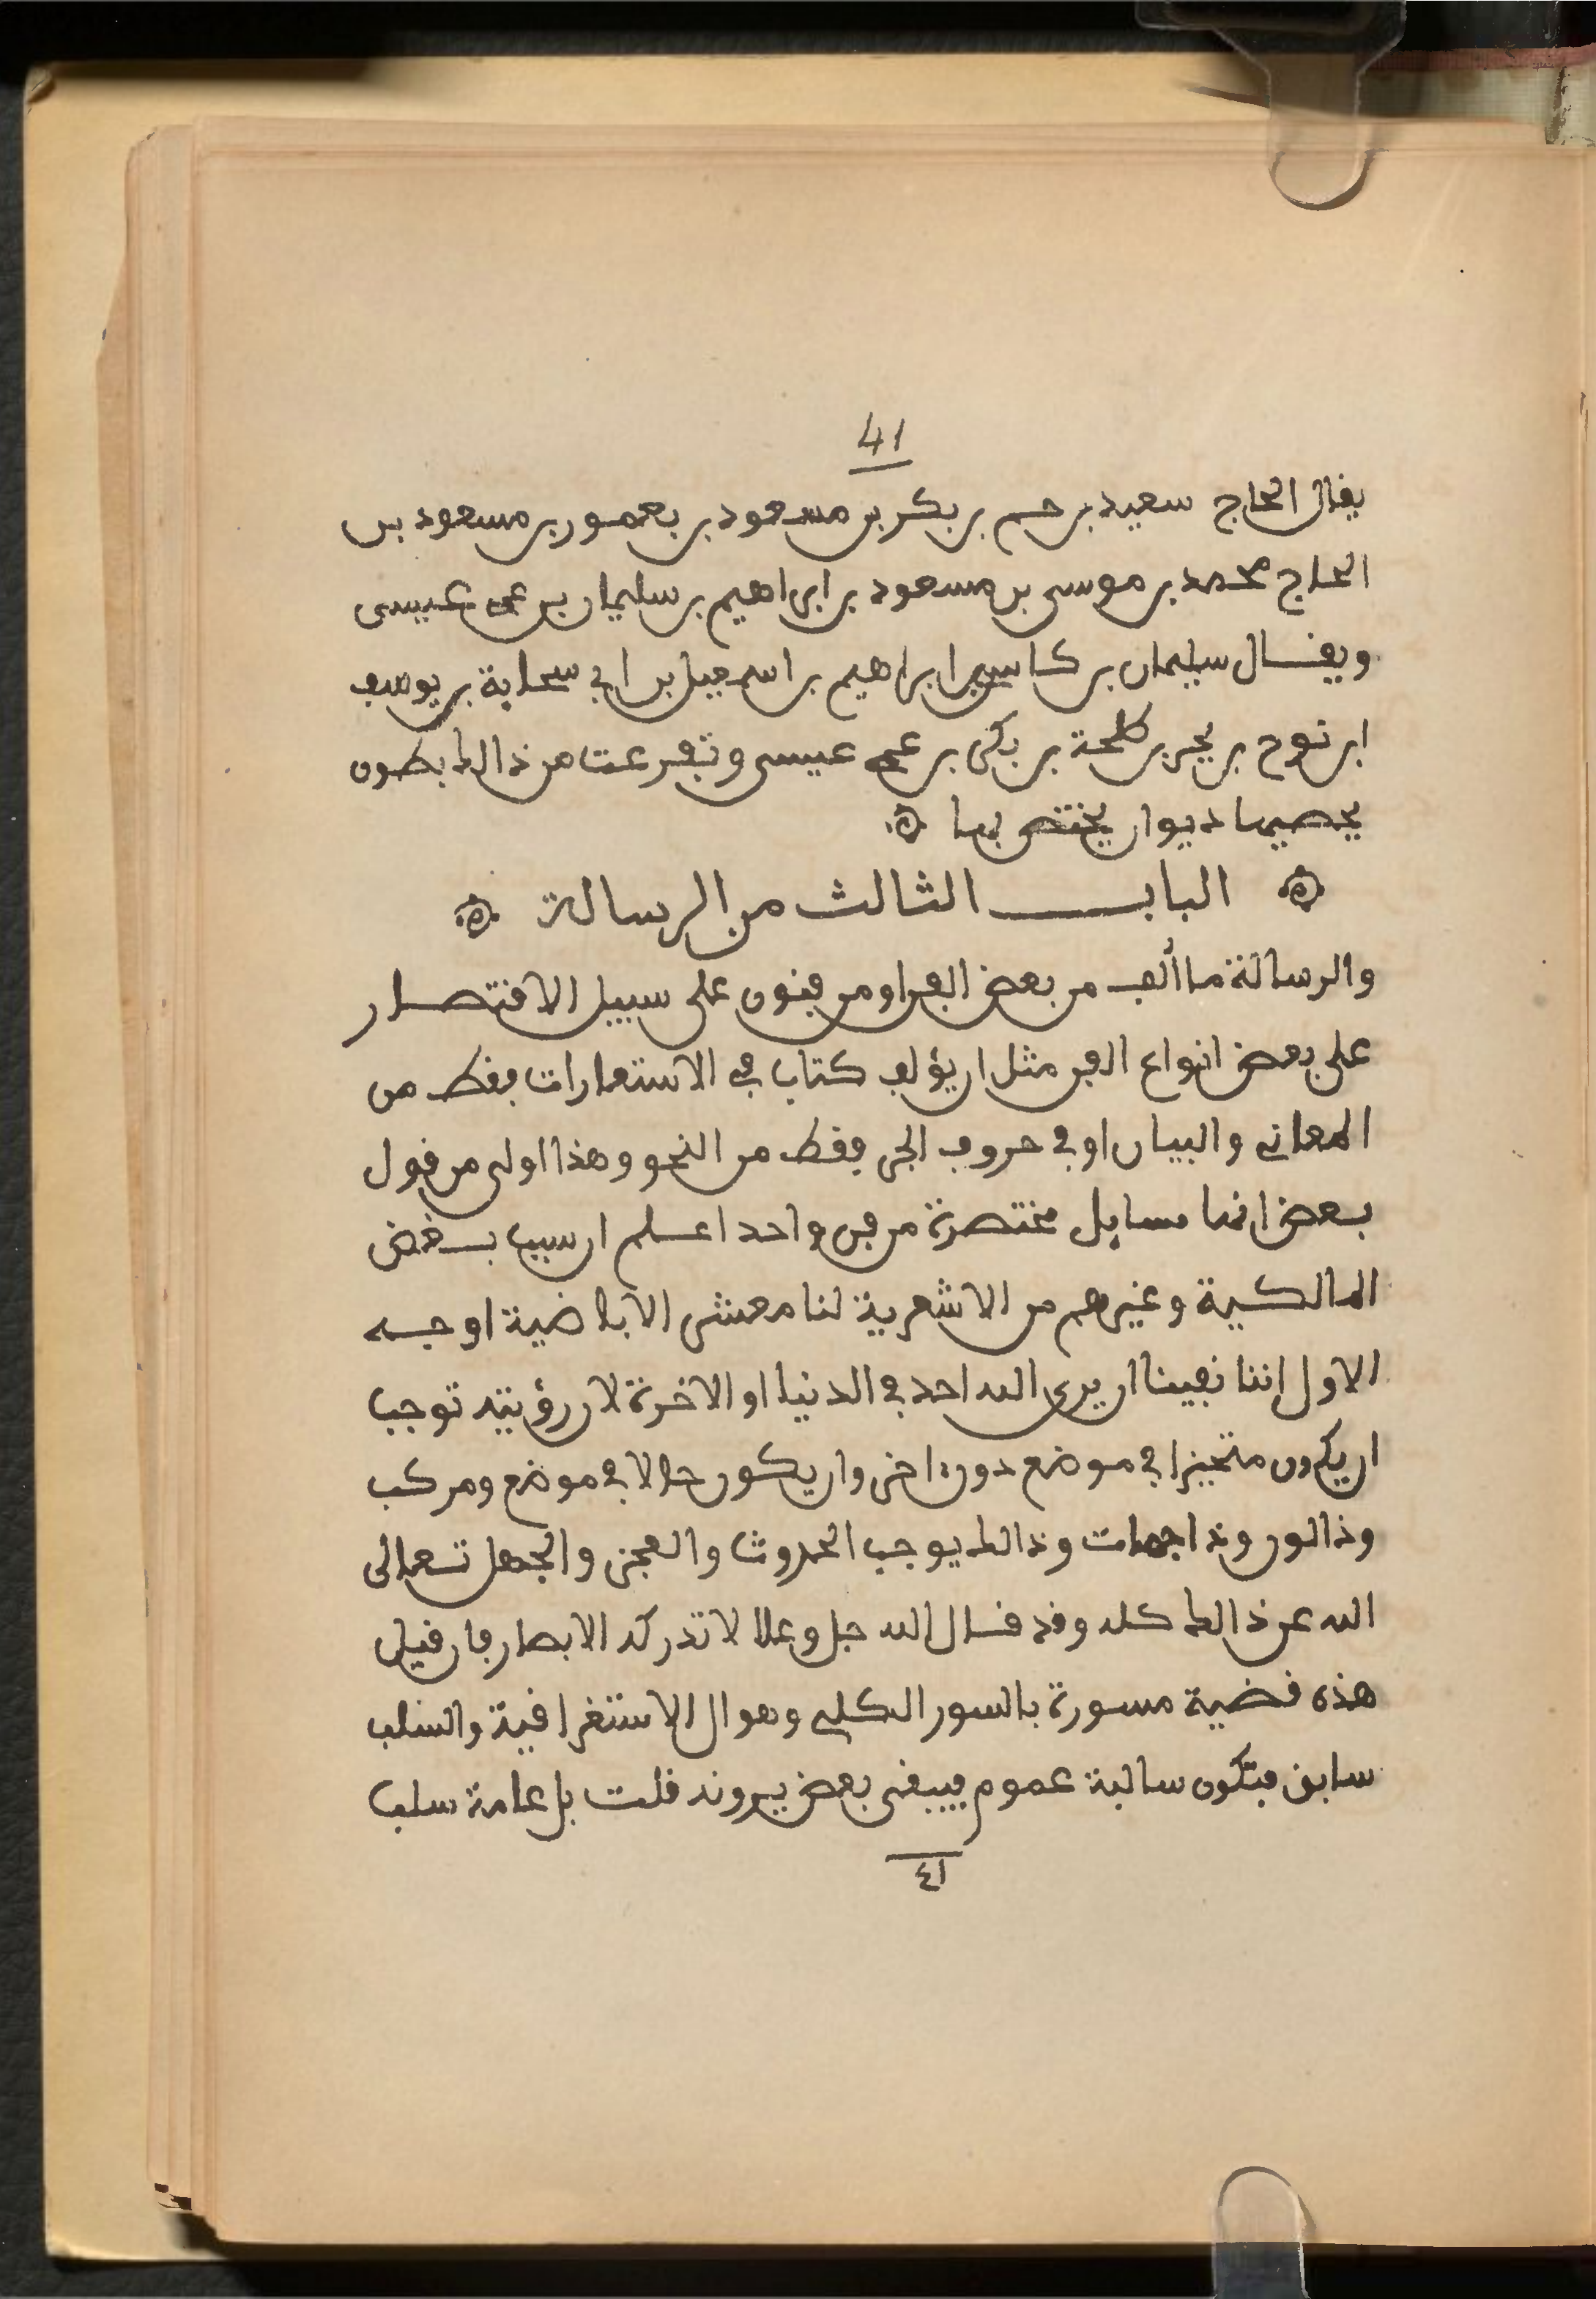 41
يقال الحاج سعيد بن حم بن بكر بن مسعود بن يعمور بن مسعود بن
الحاج محمد بن موسى بن مسعود بن ابراهيم بن سليمان بن عمي عيسى
ويقال سليمان بن كاسي بن ابراهيم بن اسمعيل بن ابي سحابة بن يوسف
ابن نوح بن يحيى بن طلحة بن بكي بن عمي عيسى وتفرعت من ذالك بطون
يحصيها ديوان يختص بها
الباب الثالث من الرسالة
والرسالة ما ألف من بعض الفن او من فنون على سبيل الاقتصار
على بعض انواع الفن مثل ان يؤلف كتاب في الاستعارات فقط من
المعاني والبيان او في حروف الجر فقط من النحو وهذا اولى من قول
بعض انها مسايل مختصرة من فن واحد اعلم ان سبب بغض
المالكية وغيرهم من الاشعرية لنا معشر الاباضية اوجه
الاول إننا نفينا ان يرى الله احد في الدنيا او الاخرة لان رؤيته توجب
ان يكون متحيزا في موضع دون اخر وان يكون حالا في موضع ومركب
وذا لون وذا جهات وذالك يوجب الحدوث والعجز والجهل تعالى
الله عن ذالك كله وقد قال الله جل وعلا لا تدركه الابصار فان قيل
هذه قضية مسورة بالسور الكلي وهو ال الاستغراقية والسلب
سابق فتكون سالبة عموم فيبقى بعض يرونه قلت بل عامة سلب
٤١